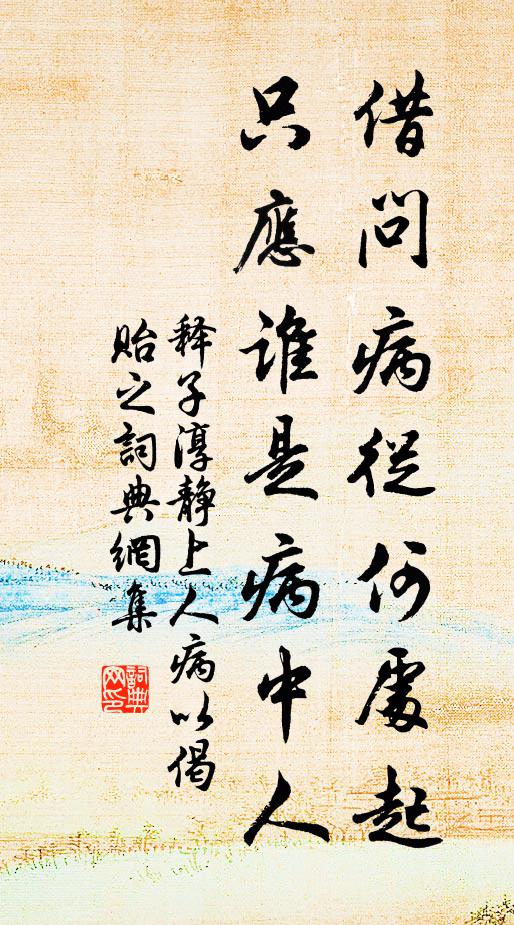 借問病從何處起
只應誰是病中人
释子淳靜上人病以偈
貽之詞典網集
詞典
网印